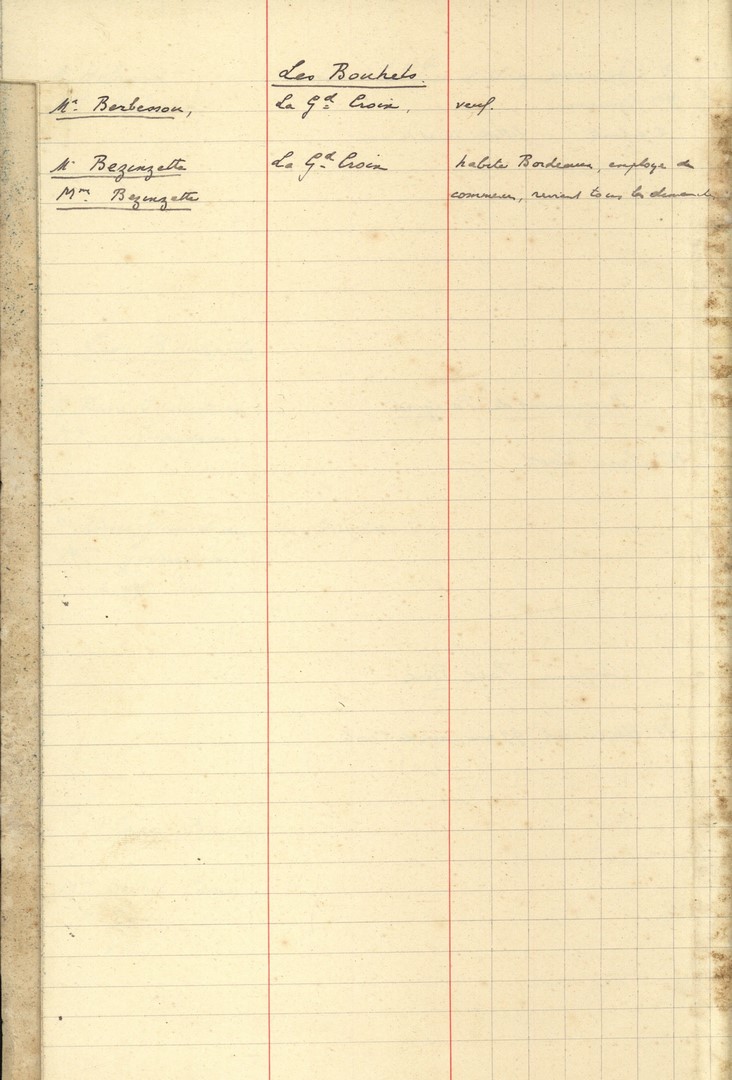 Les Bouhets.
Mr Berbesson, La Gde Croix, veuf.
Mr Bezinzette La Gde Croix habite Bordeaux, employé de
Mme Bezinzette commerce, revient tous les dimanches